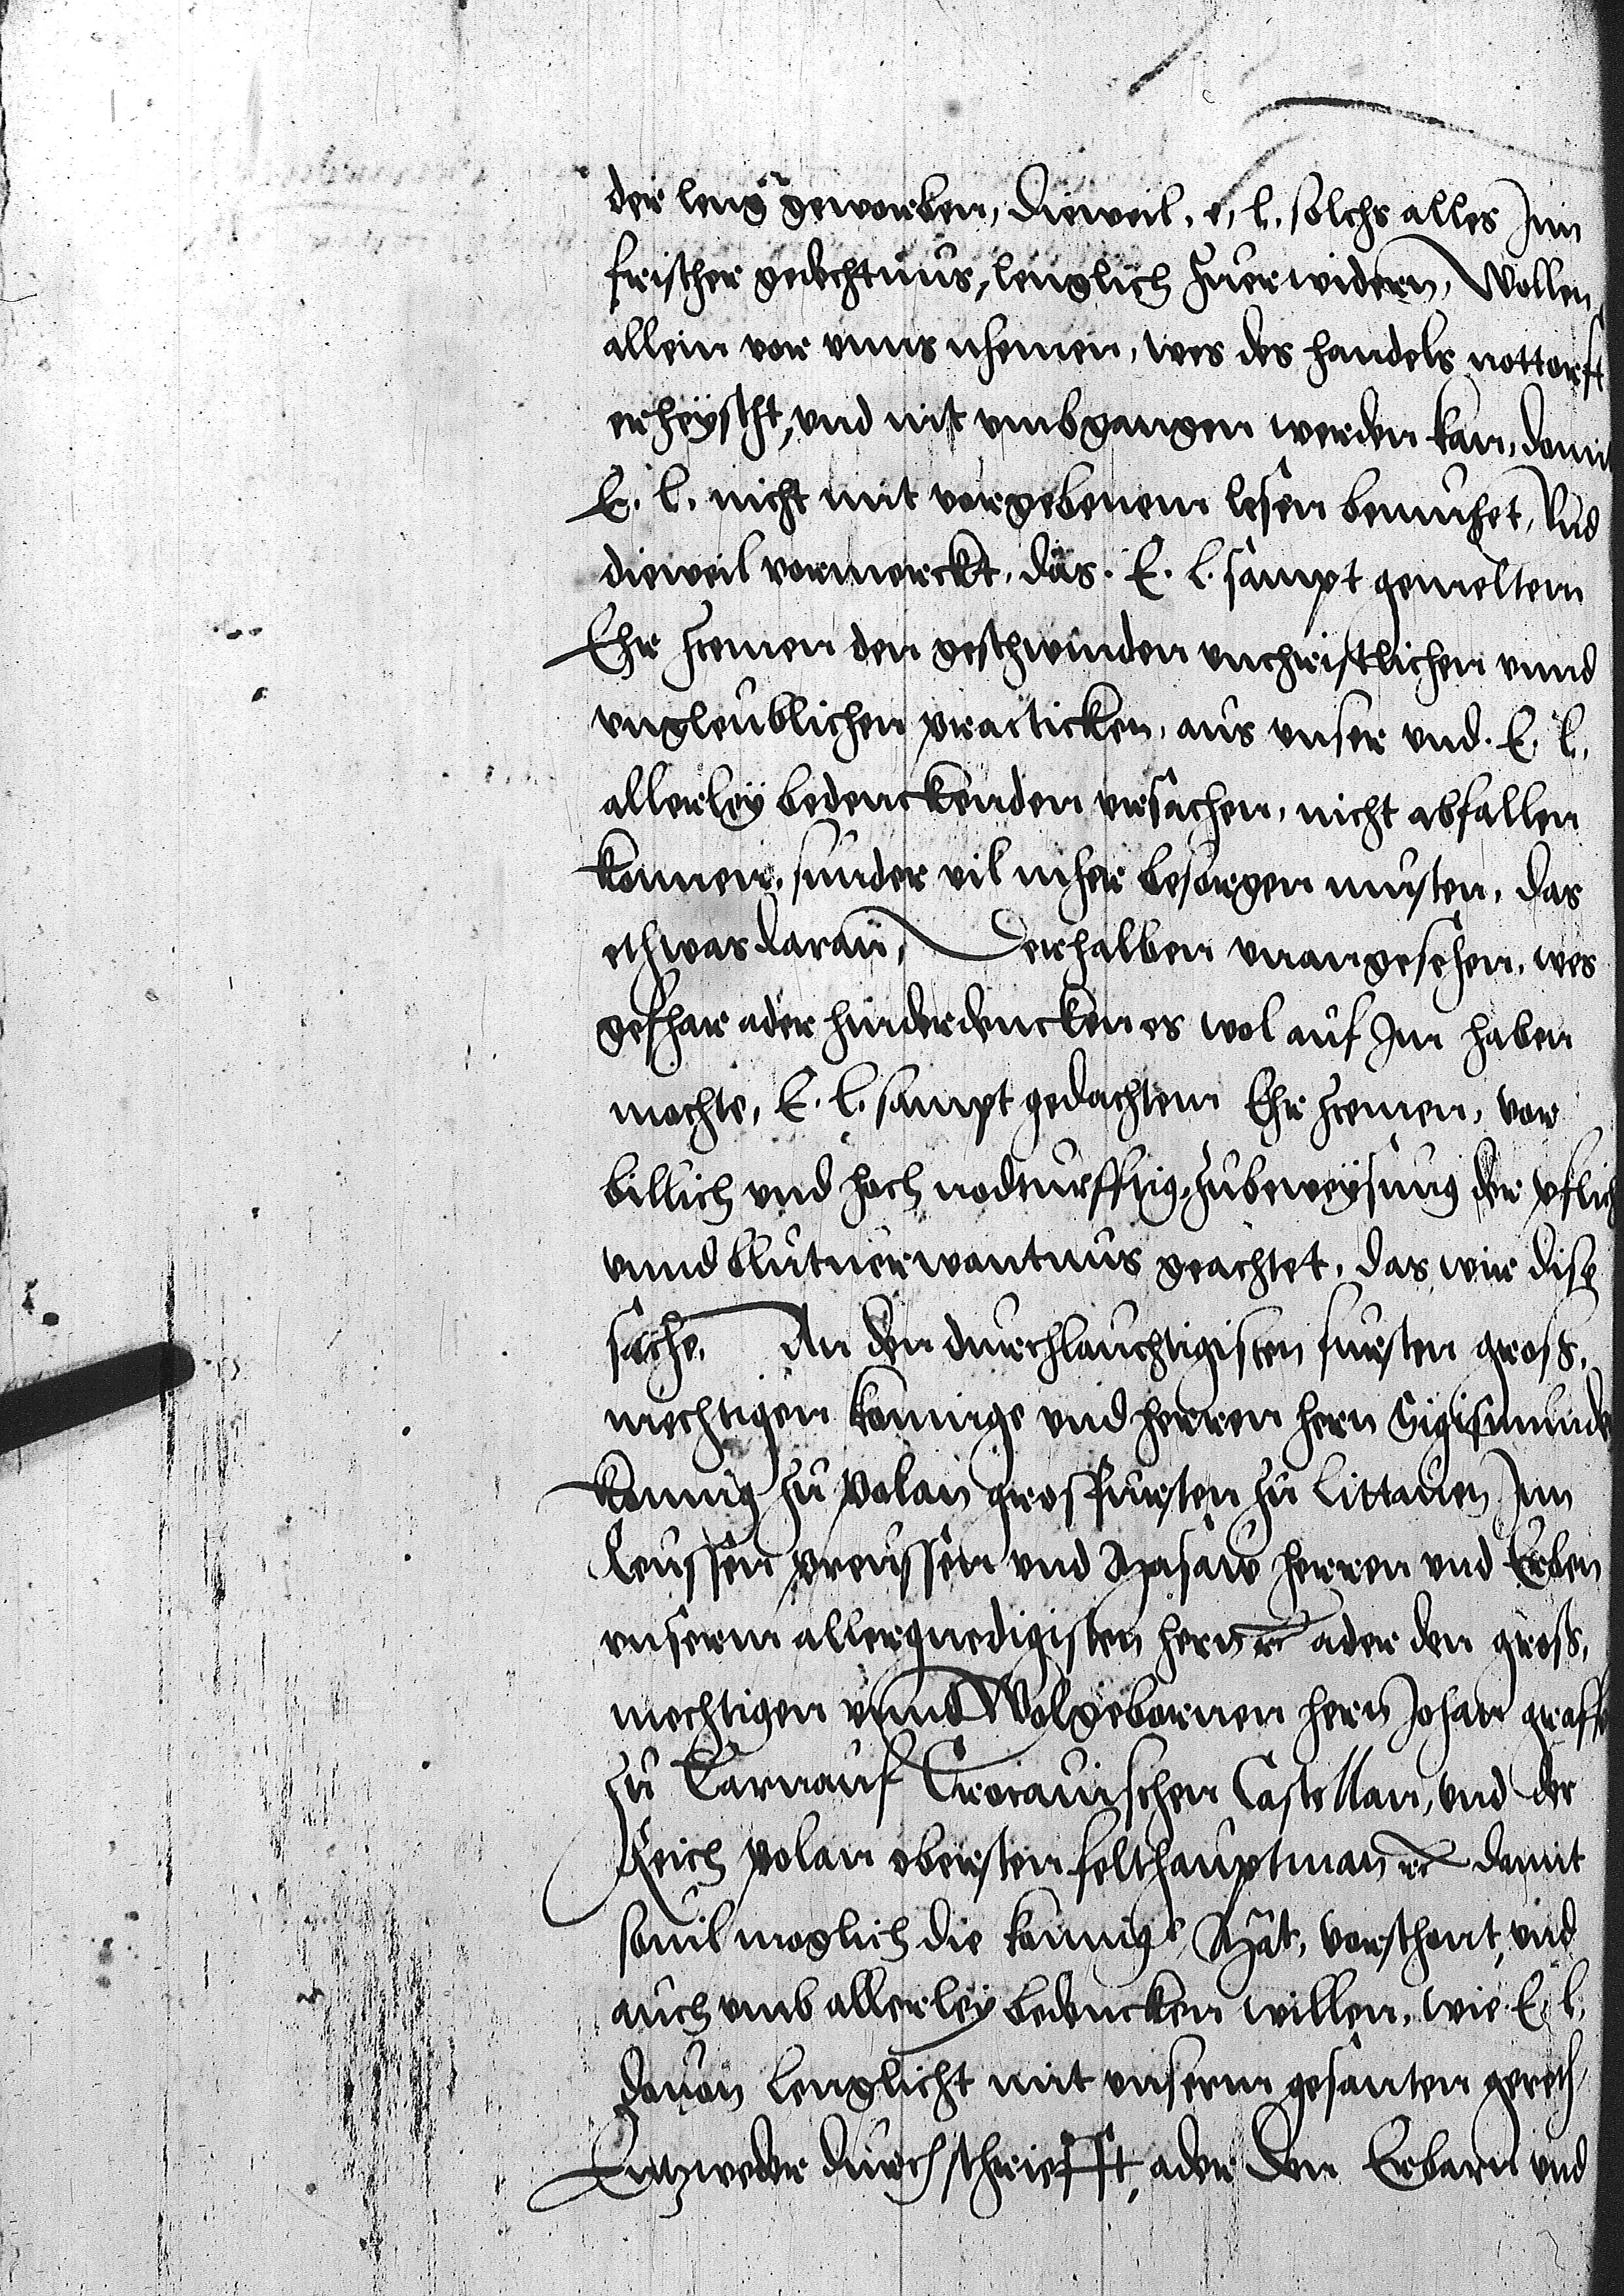 der leng geworben, Dieweil. e. l. solchs alles Inn
frischer gedechtnus, lenglich zuerwidern, Wollen
allein vor vnns nhemen, wes des handels nottorft
erheyscht, vnd nit vmbgangen werden kan, domit
E. l. nicht mit vorgebenem lesen bemuhet, Vnd
dieweil vormerckt, das. E. l. sampt gemeltem
Ehr Hemen den geschwinden vnchristlichen vnnd
vngleublichen practicken, aus vnser vnd. E. l.
allerley bedenckenden vrsachen, nicht abfallen
konnen, sunder vil mher besorgen musten, das
ethwas daran, Derhalben vnangesehen, wes
gefhar ader hinderdencken es wol auf Im haben
mochte, E. l. sampt gedachtem Ehr Hemen, vor
billich vnd hoch nodturfftig, zubeweysung der pflich
vnnd blutuerwantnus geachtet, das wir dise
sache, An den durchlauchtigisten fursten gross,
mechtigen konnige vnd herren hern Sigismunde
konnig zu Polan grosfursten zu Littauen Inn
Reussen Preussen vnd Masaw herren vnd Erben
vnserm allergnedigisten hern ader den gross,
mechtigen vnnd Wolgebornen hern Johan graff
zu Tarnauf Crocauischen Castellan, vnd der
Reich Polan obersten felthauptman damit
souil moglich die konnigs Mat, vorschont, vnd
auch vmb allerley bedencken willen, wie E. l.
dauon lenglicht mit vnserm gesanten gereth,
Entzweder durch schriefft, ader den Erbarn vnd